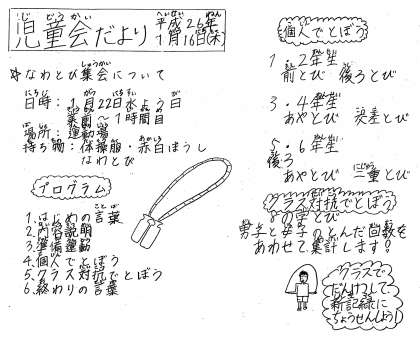 児童会だより
平成26年
1月16日(木)
なわとび集会について
日時：1月22日水よう日
業前〜1時間目
場所：運動場
持ち物：体操服・赤白ぼうし
なわとび
プログラム
1.はじめの言葉
2.内容説明
3.準備運動
4.個人でとぼう
5.クラス対抗でとぼう
6.終わりの言葉
個人でとぼう
1・2年生
前とび 後ろとび
3・4年生
あやとび 交差とび
5・6年生
後ろ
あやとび 二重とび
クラス対抗でとぼう
8の字とび
男子と女子のとんだ回数を
あわせて集計します!
クラスで
だんけつして、
新記録に
ちょうせんしよう!